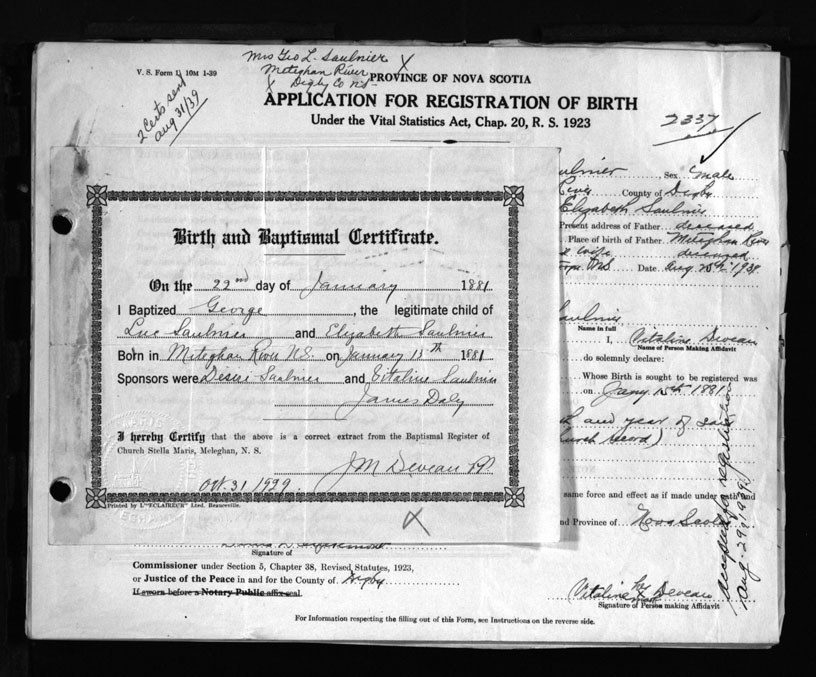 V. S. Form 10M 1-39
Mrs Geo L. Saulnier X
Meteghan River
X Digby Co NS
2 Certs sent
Aug 31/39
PROVINCE OF NOVA SCOTIA
APPLICATION FOR REGISTRATION OF BIRTH
Under the Vital Statistics Act, Chap. 20, R. S. 1923
2337
Sex Male
River County of Digby
Elizabeth Saulnier
Present address of Father deceased
Place of birth of Father Meteghan River
deceased
Date Aug
Birth and Baptismal Certificate.
On the 22nd day of January 1881
I Baptized George, the legitimate child of
Luc Saulnier and Elizabeth Saulnier
Born in Meteghan River N.S. on January 15th 1881
Sponsors were Saulnier and Vitaline Saulnier
James Daly
I hereby Certify that the above is a correct extract from the Baptismal Register of
Church Stella Maris, Meleghan, N. S.
J M Deveau
Oct. 31
Printed by L"ECLAIREUR" Lted, Beauceville.
X
Name in full
I, Vitaline Deveau
Name of Person Making Affidavit
do solemnly declare:
Whose Birth is sought to be registered was
on Jany 15th 1881
and year of
same force and effect as if made under oath and
Province of Nova Scotia
accepted for registration
Aug. 29
Signature of
Commissioner under Section 5, Chapter 38, Revised Statutes, 1923,
or Justice of the Peace in and for the County of Digby
If sworn before a Notary Public affix seal.
Vitaline Deveau
Signature of Person making Affidavit
For Information respecting the filling out of this Form, see Instructions on the reverse side.